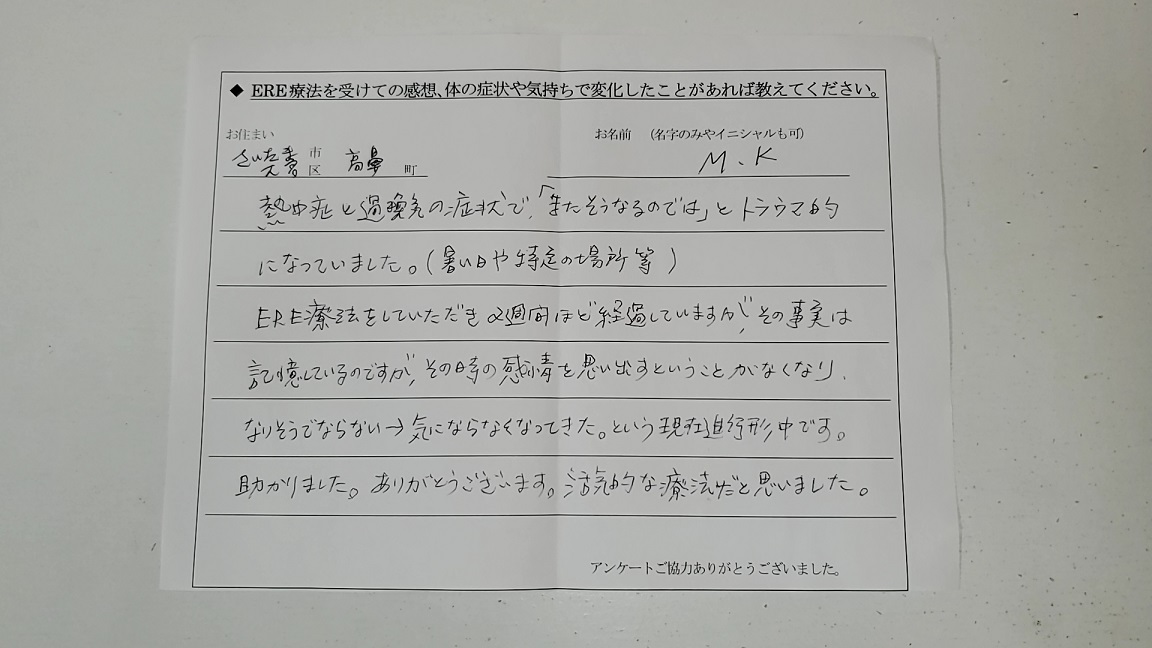 ◆ ERE療法を受けての感想、体の症状や気持ちで変化したことがあれば教えてください。
お住まい お名前 (名字のみやイニシャルも可)
さいたま 市 大宮 区 高鼻 町 M.K
熱中症と過換気の症状で、「またそうなるのでは」とトラウマ的
になっていました。(暑い日や特定の場所等)
ERE療法をしていただき2週間ほど経過していますが、その事実は
記憶しているのですが、その時の感情を思い出すということがなくなり、
なりそうでならない→気にならなくなってきた。という現在進行形中です。
助かりました。ありがとうございます。活気的な療法だと思いました。
アンケートご協力ありがとうございました。